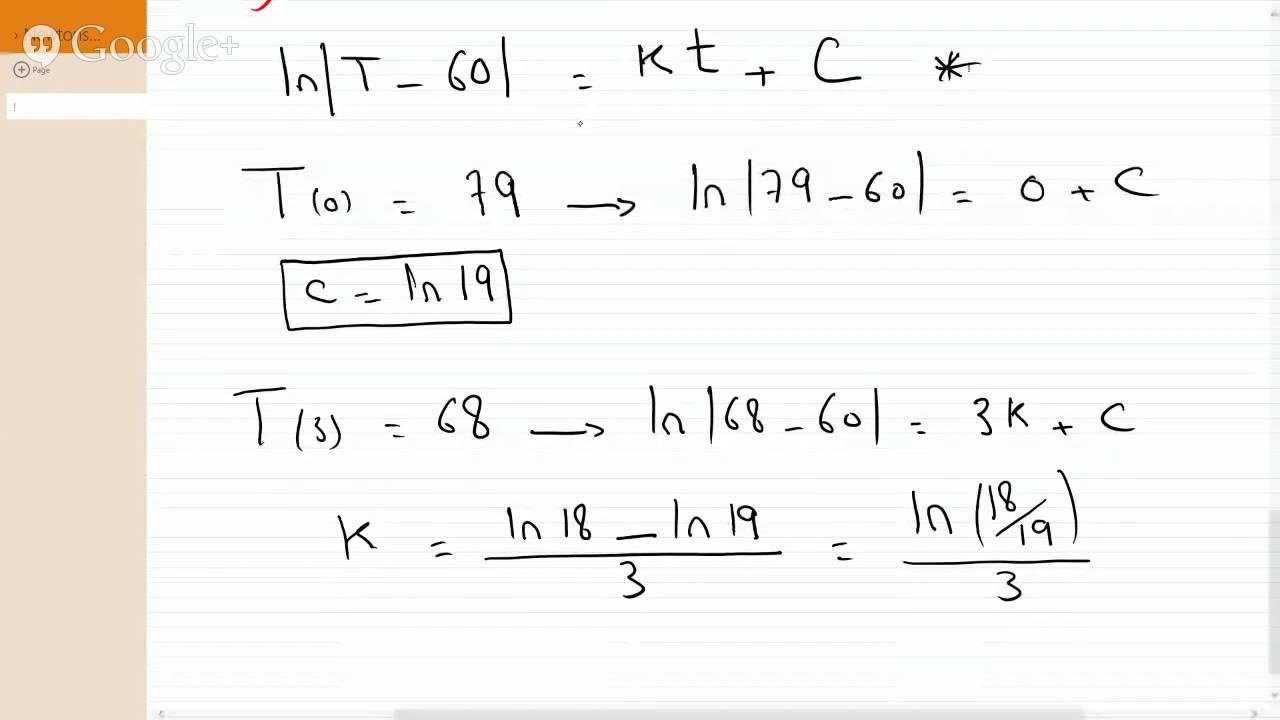 Google+
Page
ln|T - 60| = kt + C *
T(0) = 79 → ln|79 - 60| = 0 + C
C = ln 19
T(3) = 68 → ln|68 - 60| = 3k + C
k = (ln 18 - ln 19)/3 = ln(18/19)/3